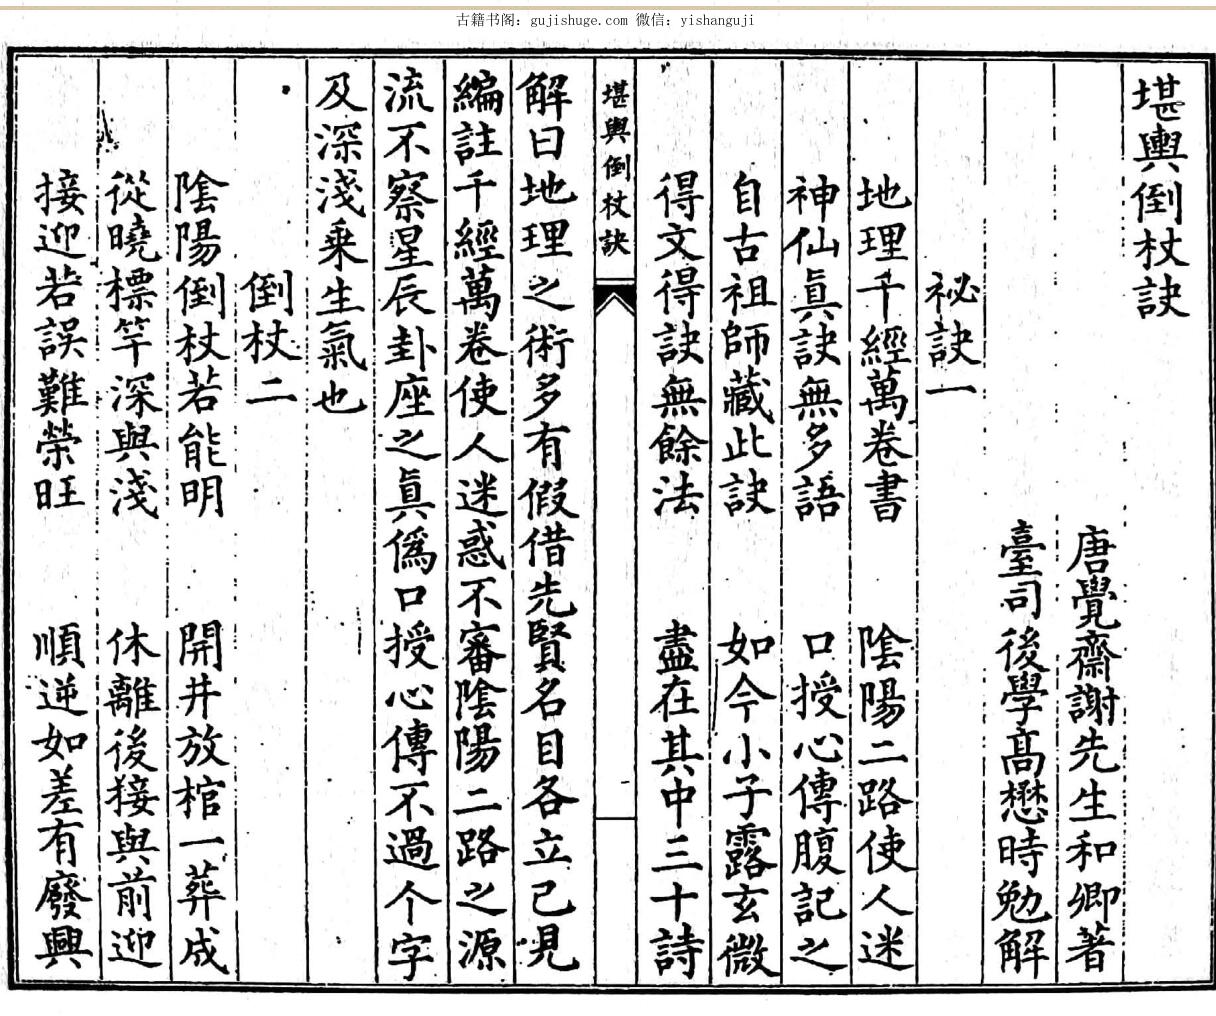 古籍书阁：gujishuge.com 微信：yishanguji
堪輿倒杖訣
唐覺齋謝先生和卿著
臺司後學高懋時勉解
祕訣一
地理千經萬卷書　陰陽二路使人迷
神仙眞訣無多語　口授心傳腹記之
自古祖師藏此訣　如今小子露玄微
得文得訣無餘法　盡在其中三十詩
堪輿倒杖訣
解曰地理之術多有假借先賢名目各立己見
編註千經萬卷使人迷惑不審陰陽二路之源
流不察星辰卦座之眞僞口授心傳不過个字
及深淺乗生氣也
倒杖二
陰陽倒杖若能明　開井放棺一葬成
從曉標竿深與淺　休離後接與前迎
接迎若誤難榮旺　順逆如差有廢興